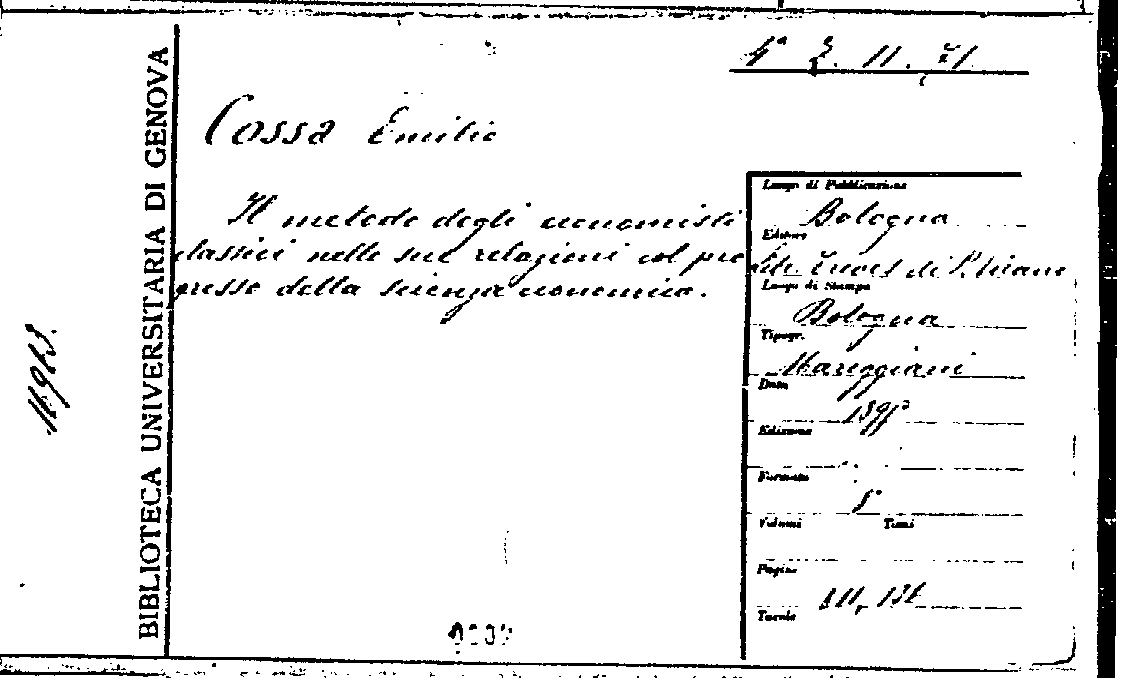 BIBLIOTECA UNIVERSITARIA DI GENOVA
Cossa Emilio
Il metodo degli economisti
classici nelle sue relazioni col pro
gresso della scienza economica.
Luogo di Pubblicazione
Bologna
Editore
Luogo di Stampa
Bologna
Tipogr.
Mareggiani
Data
Edizione
Formato
8°
Volumi Tomi
Pagine
Tavole